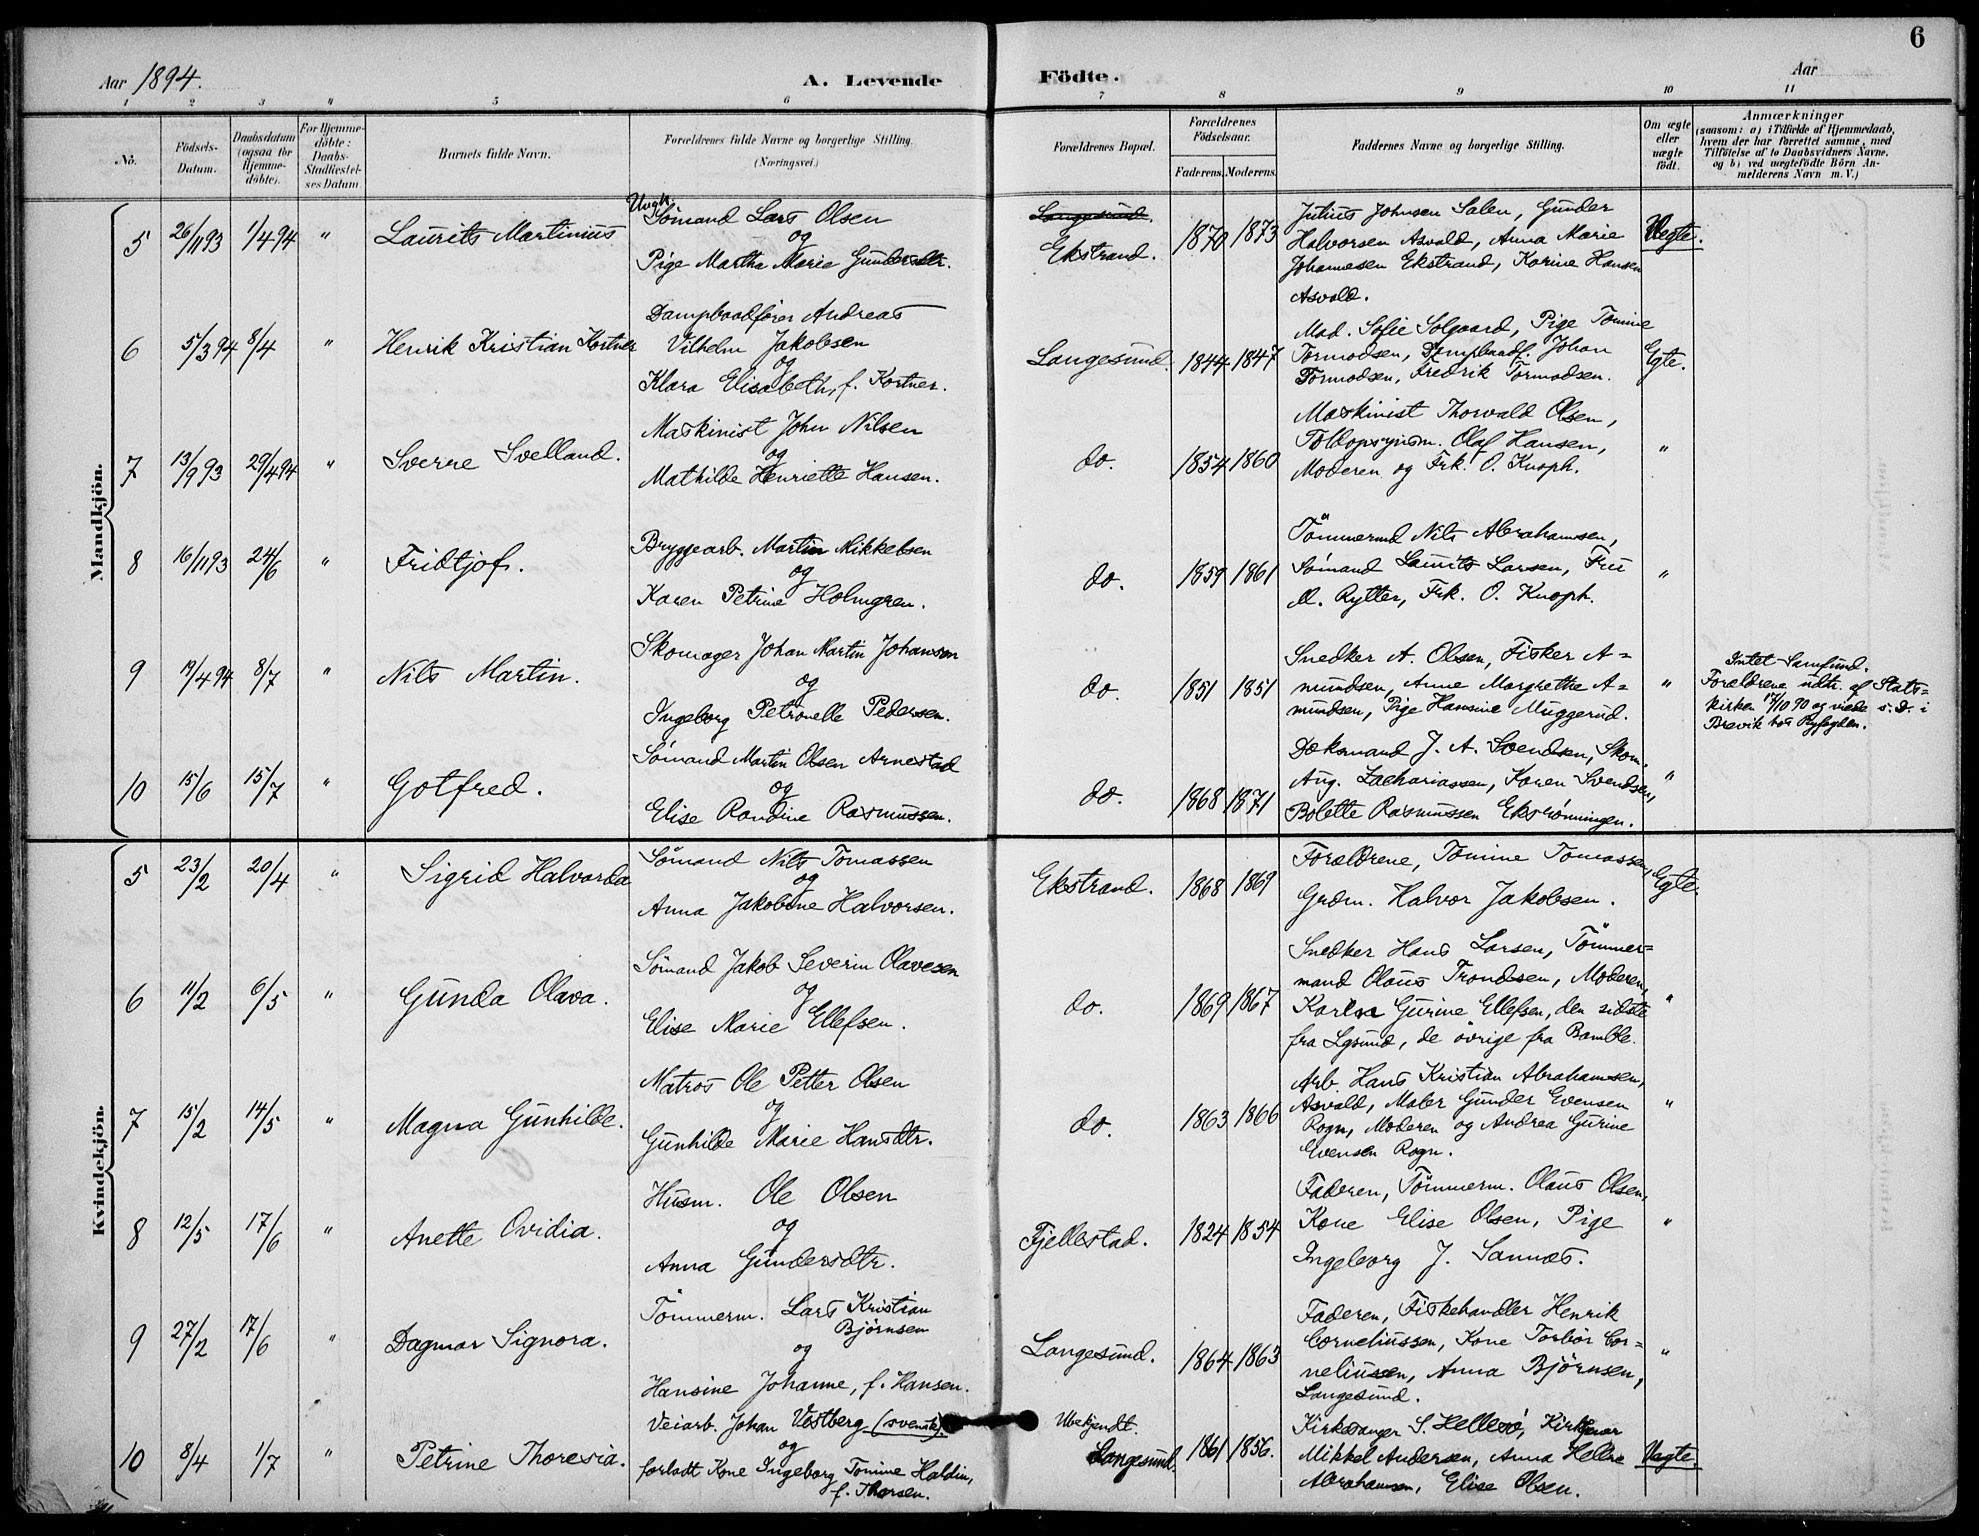 6
Aar 1894.
A. Levende
Födte.
Aar
1 2 3 4 5 6 7 8 9 10 11
No.
Födsels-Datum.
Daabsdatum (ogsaa for Hjemme-döbte).
For Hjemme-döbte: Daabs-Stadfæstel-ses Datum.
Barnets fulde Navn.
Forældrenes fulde Navne og borgerlige Stilling.
(Næringsvei.)
Forældrenes Bopæl.
Forældrenes Födselsaar.
Faderens. Moderens.
Faddernes Navne og borgerlige Stilling.
Om ægte eller uægte födt.
Anmærkninger
(saasom: a) i Tilfælde af Hjemmedaab,
hvem der har forrettet samme, med
Tilföielse af to Daabsvidners Navne,
og b) ved uægtefödte Börn An-
melderens Navn m. V.)
Mandkjön.
5 26/11 93 1/4 94 " Laurits Martinius
Ungk.
Sømand Lars Olsen
og
Pige Martha Marie Gundersdtr.
Langesund.
Ekstrand.
1870 1873
Julius Johnsen Salen, Gunder
Halvorsen Asvald, Anna Marie
Johannesen Ekstrand, Karine Hansen
Asvald.
Uegte.
6 5/3 94 8/4 " Henrik Kristian Kortner
Dampbaadfører Andreas
Vilhelm Jakobsen
og
Klara Elisabeth, f. Kortner.
Langesund. 1844 1847
Mad. Sofie Solgaard, Pige Tomine
Tormodsen, Dampbaadf. Johan
Tormodsen, Fredrik Tormodsen.
Egte.
7 13/9 93 29/4 94 " Sverre Svelland.
Maskinist John Nilsen
og
Mathilde Henriette Hansen.
do. 1854 1860
Maskinist Thorvald Olsen,
Toldopsynsm. Olaf Hansen,
Moderen og Frk. O. Knoph.
"
8 16/11 93 24/6 " Fridtjof.
Bryggearb. Martin Mikkelsen
og
Karen Petrine Holmgren.
do. 1859 1861
Tømmermd Nils Abrahamsen,
Sømand Laurits Larsen, Fru
M. Rytter, Frk. O. Knoph.
"
9 19/4 94 8/7 " Nils Martin.
Skomager Johan Martin Johanson
og
Ingeborg Petronelle Pedersen.
do. 1851 1851
Snedker A. Olsen, Fisker A=
mundsen, Anne Margrethe A=
mundsen, Pige Hansine Muggerud.
"
Intet Samfund.
Forældrene udtr. af Stats=
kirken 17/10 90 og viede s. D. i
Brevik hos Byfogden.
10 15/6 15/7 " Gotfred.
Sømand Martin Olsen Arnestad
og
Elise Randine Rasmussen.
do. 1868 1871
Doksmand J. A. Svendsen, Skom.
Aug. Zachariassen, Karen Svendsen,
Bolette Rasmussen
"
Kvindekjön.
5 23/2 20/4 " Sigrid Halvorda
Sømand Nils Tomassen
og
Anna Jakobine Halvorsen.
Ekstrand. 1868 1869
Forældrene, Tomine Tomassen,
Grdm. Halvor Jakobsen.
Egte.
6 11/2 6/5 " Gunda Olava.
Sømand Jakob Severin Olavesen
og
Elise Marie Ellefsen.
do. 1869 1867
Snedker Hans Larsen, Tømmer=
mand Olaus Trondsen, Moderen,
Karlsa Gurine Ellefsen, den sidste
fra Lgsund, de øvrige fra Bamble.
"
7 15/2 14/5 " Magna Gunhilde.
Matros Ole Petter Olsen
og
Gunhilde Marie Hansdtr.
do. 1863 1866
Arb. Hans Kristian Abrahamsen,
Asvald, Maler Gunder Evensen
Rogn, Moderen og Andrea Gurine
Evensen Rogn.
"
8 12/5 17/6 " Anette Ovidia.
Husm. Ole Olsen
og
Anna Gundersdtr.
Fjellestad. 1824 1854
Faderen, Tømmerm. Olaus Olsen,
Kone Elise Olsen, Pige
Ingeborg J. Sannæs.
"
9 27/2 17/6 " Dagmar Signora.
Tømmerm. Lars Kristian
Bjørnsen
og
Hansine Johanne, f. Hansen.
Langesund. 1864 1863
Faderen, Fiskehandler Henrik
Corneliussen, Kone Torbør Cor=
neliussen, Anna Bjørnsen,
Langesund.
"
10 8/4 1/7 " Petrine Thoresia.
Veiarb. Johan Vestberg (svensk)
og
forladt Kone Ingeborg Tomine Haldin,
f. Thorsen.
Ubekjendt.
Langesund. 1861 1856.
Kirkesanger S. Hellesø, Kirketjener
Mikkel Andersen, Anna Helene
Abrahamsen, Elise Olsen.
Uegte.